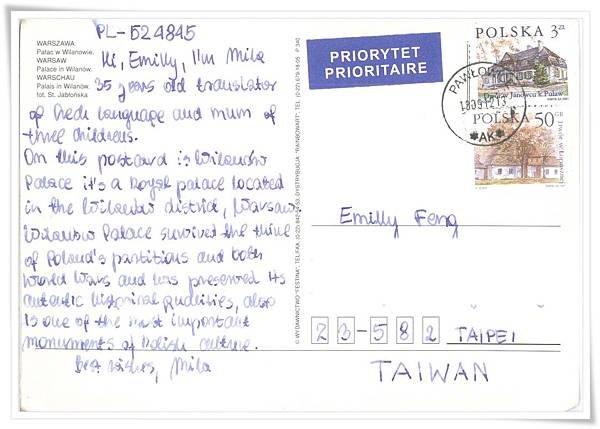 PL-524845
WARSZAWA:
Pałac w Wilanowie.
WARSAW
Palace in Wilanów.
WARSCHAU
Palais in Wilanów.
fot. St. Jabłońska
Hi, Emilly, I'm Mila
35 years old translator
of Czech language and mum of
three childrens.
On this postcard is Wilanów
Palace it's a Royal palace located
in the Wilanów district, Warsaw.
Wilanów Palace survived the time
of Poland's partitions and both
World Wars and has preserved its
autentic historical qualities, also
is one of the most important
monuments of Polish culture.
Best wishes, Mila
© WYDAWNICTWO "FESTINA", TEL/FAX (0-22) DYSTRYBUCJA "RANBOWART" TEL. (0-22) 679-18-05 P 340
PRIORYTET
PRIORITAIRE
POLSKA 3 ZŁ
Dwór w Janówcu k. Puław
POLSKA 50 GR
PAWŁO
*AK*
Emilly Feng
23-582 TAIPEI
TAIWAN